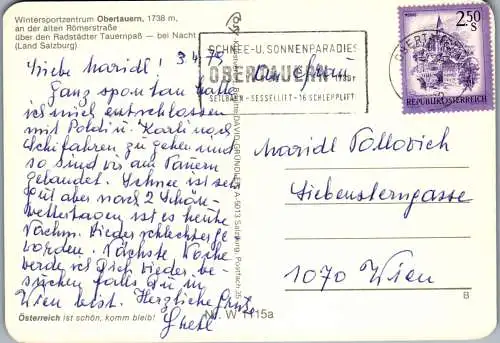 Wintersportzentrum Obertauern, 1738 m,
an der alten Römerstraße
über den Radstädter Tauernpaß — bei Nacht
(Land Salzburg)
Liebe Maridl! 3.4.75
Ganz spontan habe
ich mich entschlossen
mit Poldi u. Karli nach
Schifahren zu gehen und
so sind wir am Tauern
gelandet. Schnee ist sehr
gut aber nach 2 Schön-
wettertagen ist es heute
Nachm. wieder schlechter ge-
worden. Nächste Woche
werde ich Dich wieder be-
suchen falls du in
Wien bist. Herzliche Grüße
Gretl
Österreich ist schön, komm bleib!
SCHNEE-U. SONNENPARADIES
OBERTAUERN
SEILBAHN - SESSELLIFT - 16 SCHLEPPLIFTE
2.50
S
REPUBLIK ÖSTERREICH
An Frau
Maridl
Siebensterngasse
1070 Wien
DAVID GRÜNDLER, A-5013 Salzburg, Postfach 35
Nr. W 1115a
B